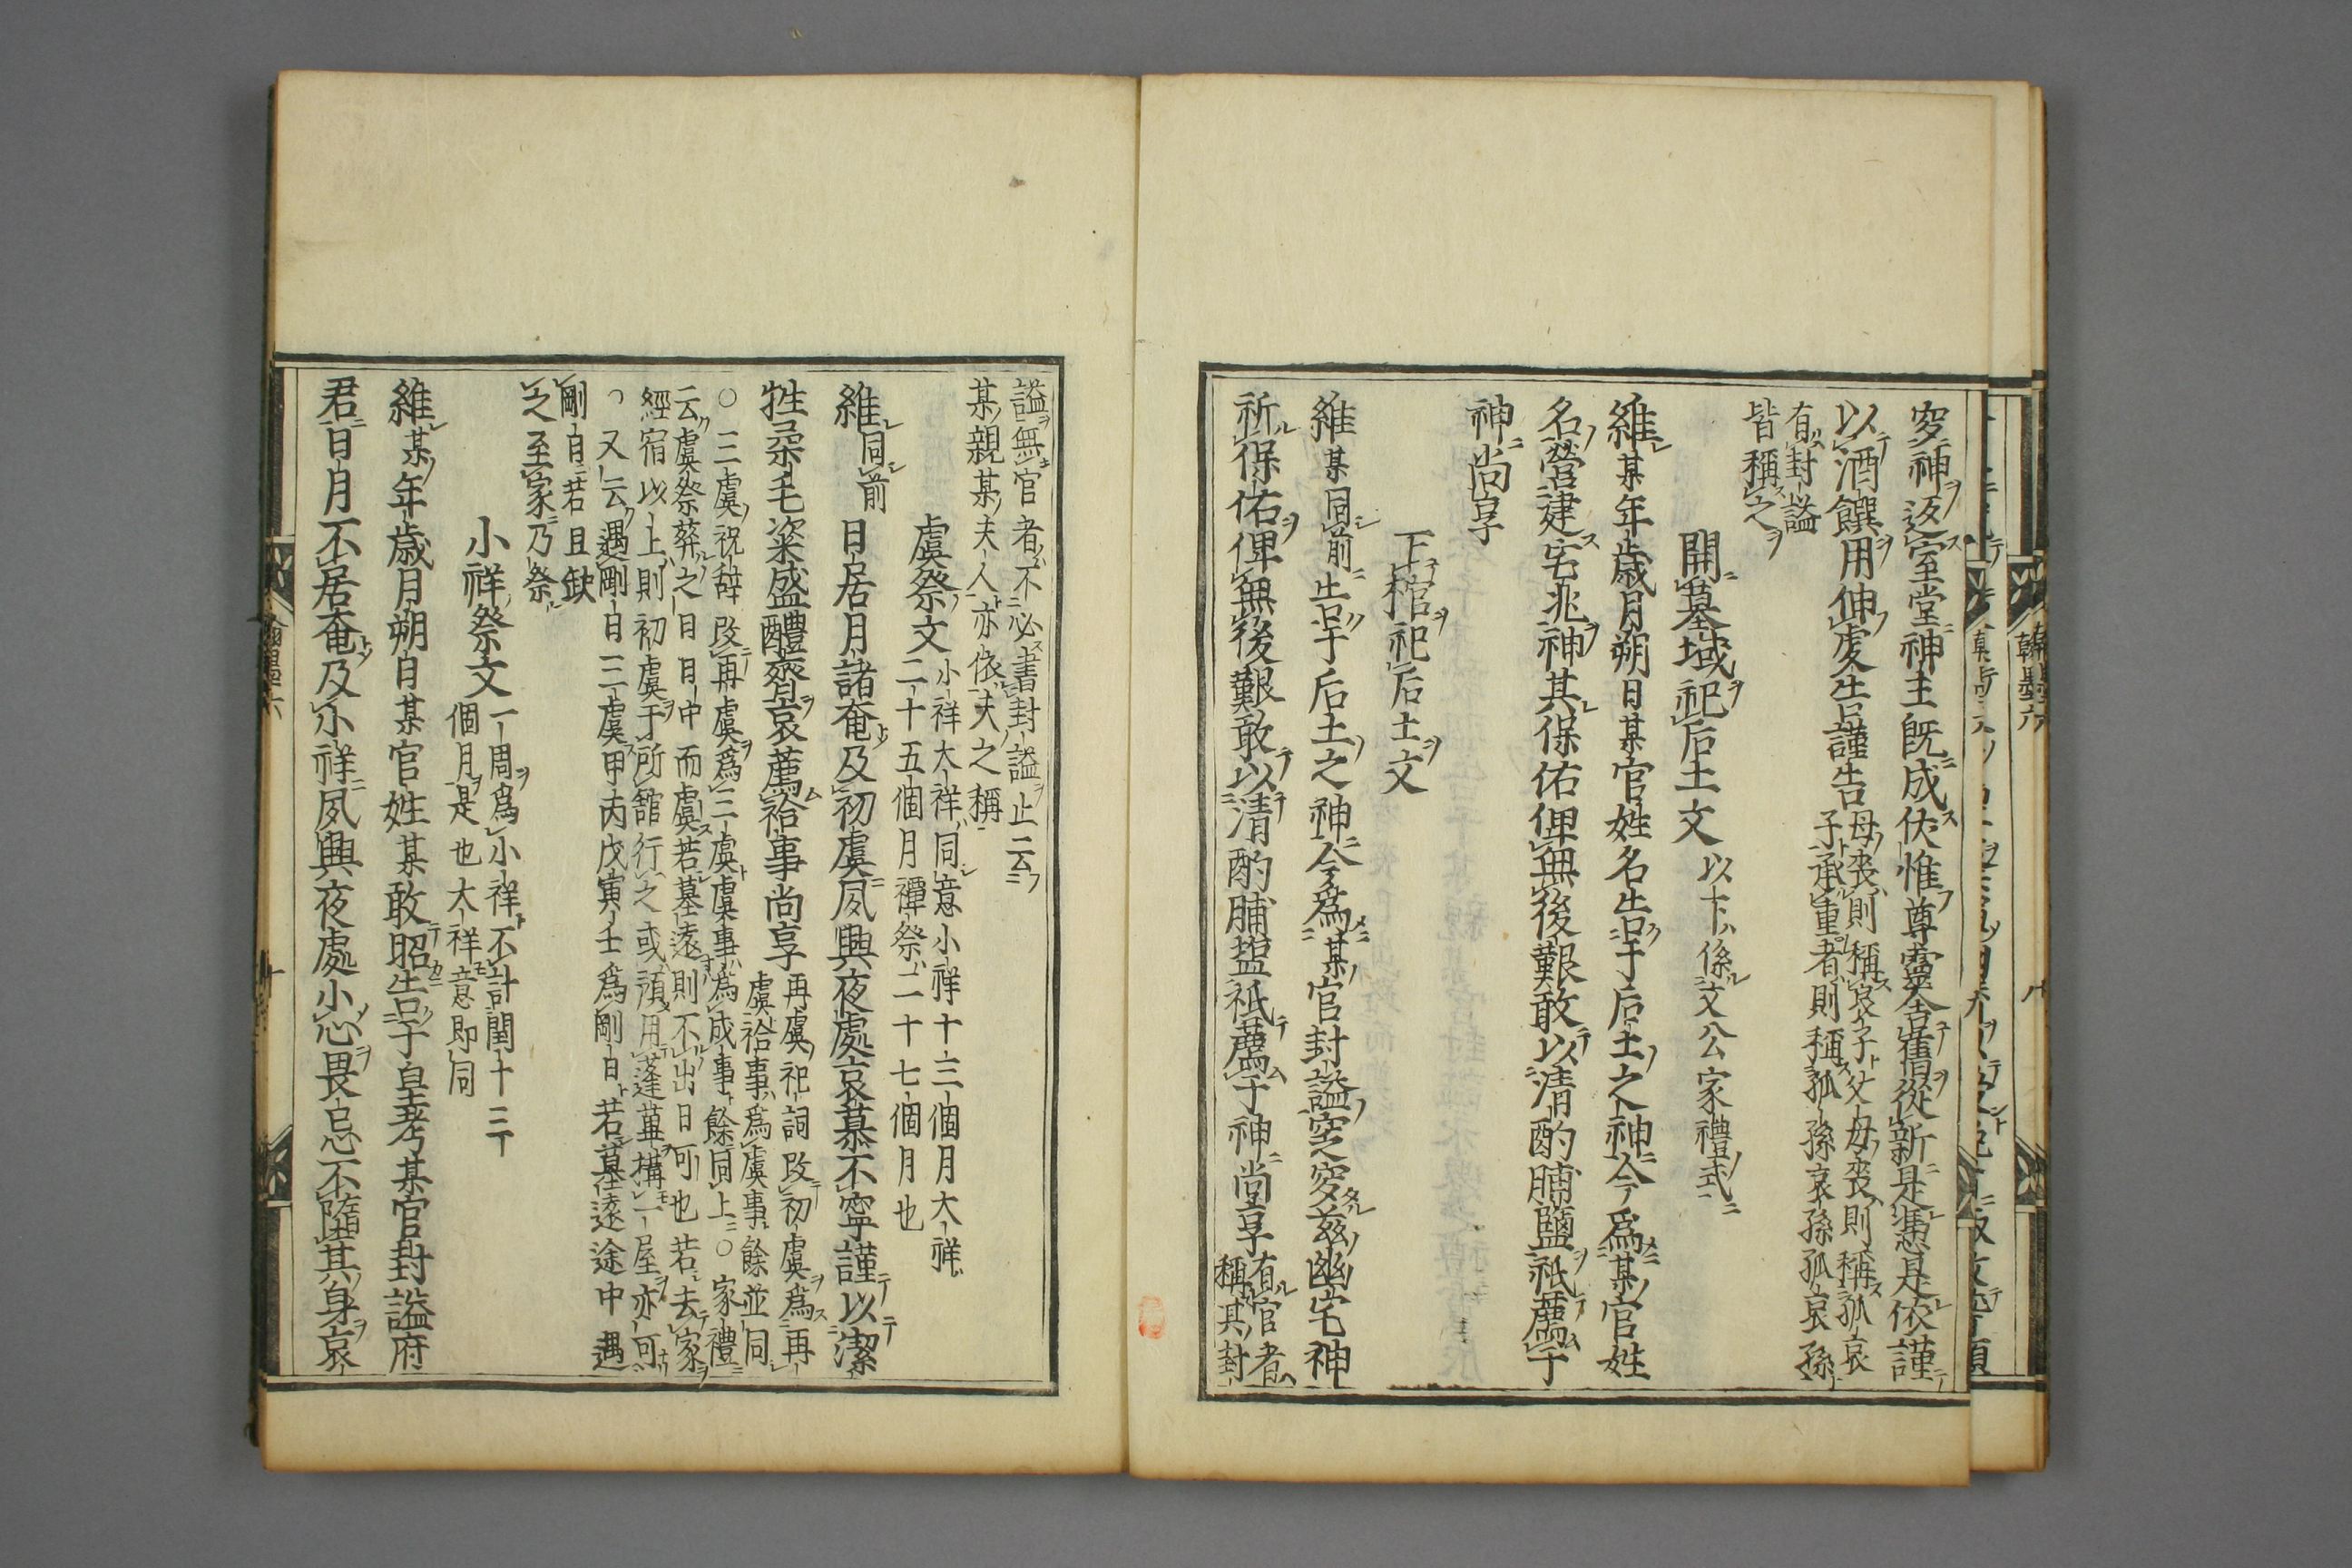 窆神返室堂神主既成伏惟尊靈舍舊從新是憑是依謹
以酒饌用伸虔告謹告
母喪則稱哀子父母喪則稱孤哀
子承重者則稱孤孫哀孫孤哀孫
有封謚
皆稱之
開墓域祀后土文
以下係文公家禮式
維某年歲月朔日某官姓名告于后土之神今爲某官姓
名營建宅兆神其保佑俾無後艱敢以清酌脯鹽祇薦于
神尚享
下棺祀后土文
維某同前告于后土之神今爲某官封謚窆兹幽宅神
祈保佑俾無後艱敢以清酌脯盬祇薦于神尚享
有官者
稱其封
謚無官者不必書封謚止云
某親某夫人亦依夫之稱
虞祭文
小祥大祥同意小祥十三個月大祥
二十五個月禫祭二十七個月也
維同前日居月諸奄及初虞夙興夜處哀慕不寧謹以潔
牲柔毛粢盛醴齊哀薦祫事尚享
再虞祀詞改初虞爲再
虞祫事爲虞事餘並同
○三虞祝辞改再虞爲三虞虞事爲成事餘同上○家禮
云虞祭葬之日日中而虞若墓遠則不出日可也若去家
經宿以上則初虞于所舘行之或湏用蓬蓽搆一屋亦可
○又云遇剛日三虞甲丙戊寅壬爲剛日若墓遠途中遇
剛日若且缺
之至家乃祭
小祥祭文
一周爲小祥不計閏十三
個月是也大祥意即同
維某年歲月朔日某官姓某敢昭告于皇考某官封謚府
君日月不居奄及小祥夙興夜處小心畏忌不隳其身哀
翰墨六